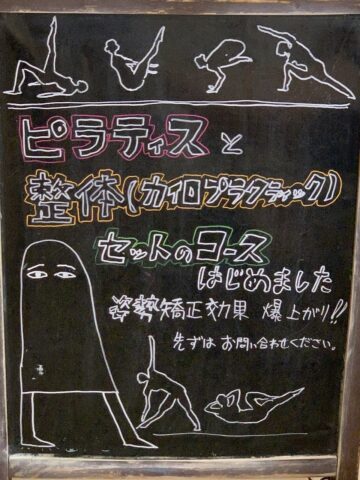 ピラティスと
整体(カイロプラクティック)
セットのコース
はじめました
姿勢矯正効果 爆上がり!!
先ずは お問い合わせください。